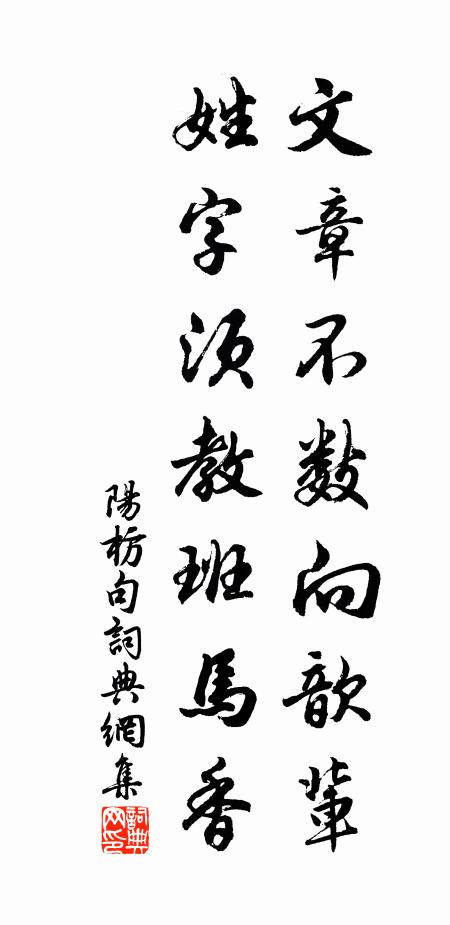 文章不数向歆輩
姓字須教班馬香
陽枋句詞典網集
詞典网印